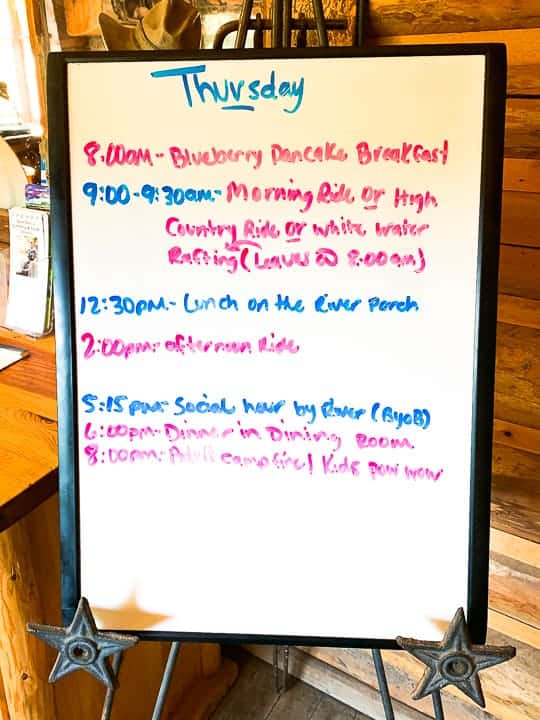 Thursday
8:00AM- Blueberry Pancake Breakfast
9:00-9:30am- Morning Ride Or High
Country Ride Or White Water
Rafting (Leaves @ 8:00am)
12:30pm- Lunch on the River Porch
2:00pm- afternoon Ride
5:15pm- Social hour by River (BYOB)
6:00pm- Dinner in Dining Room
8:00pm- Adult campfire/ Kids pow wow